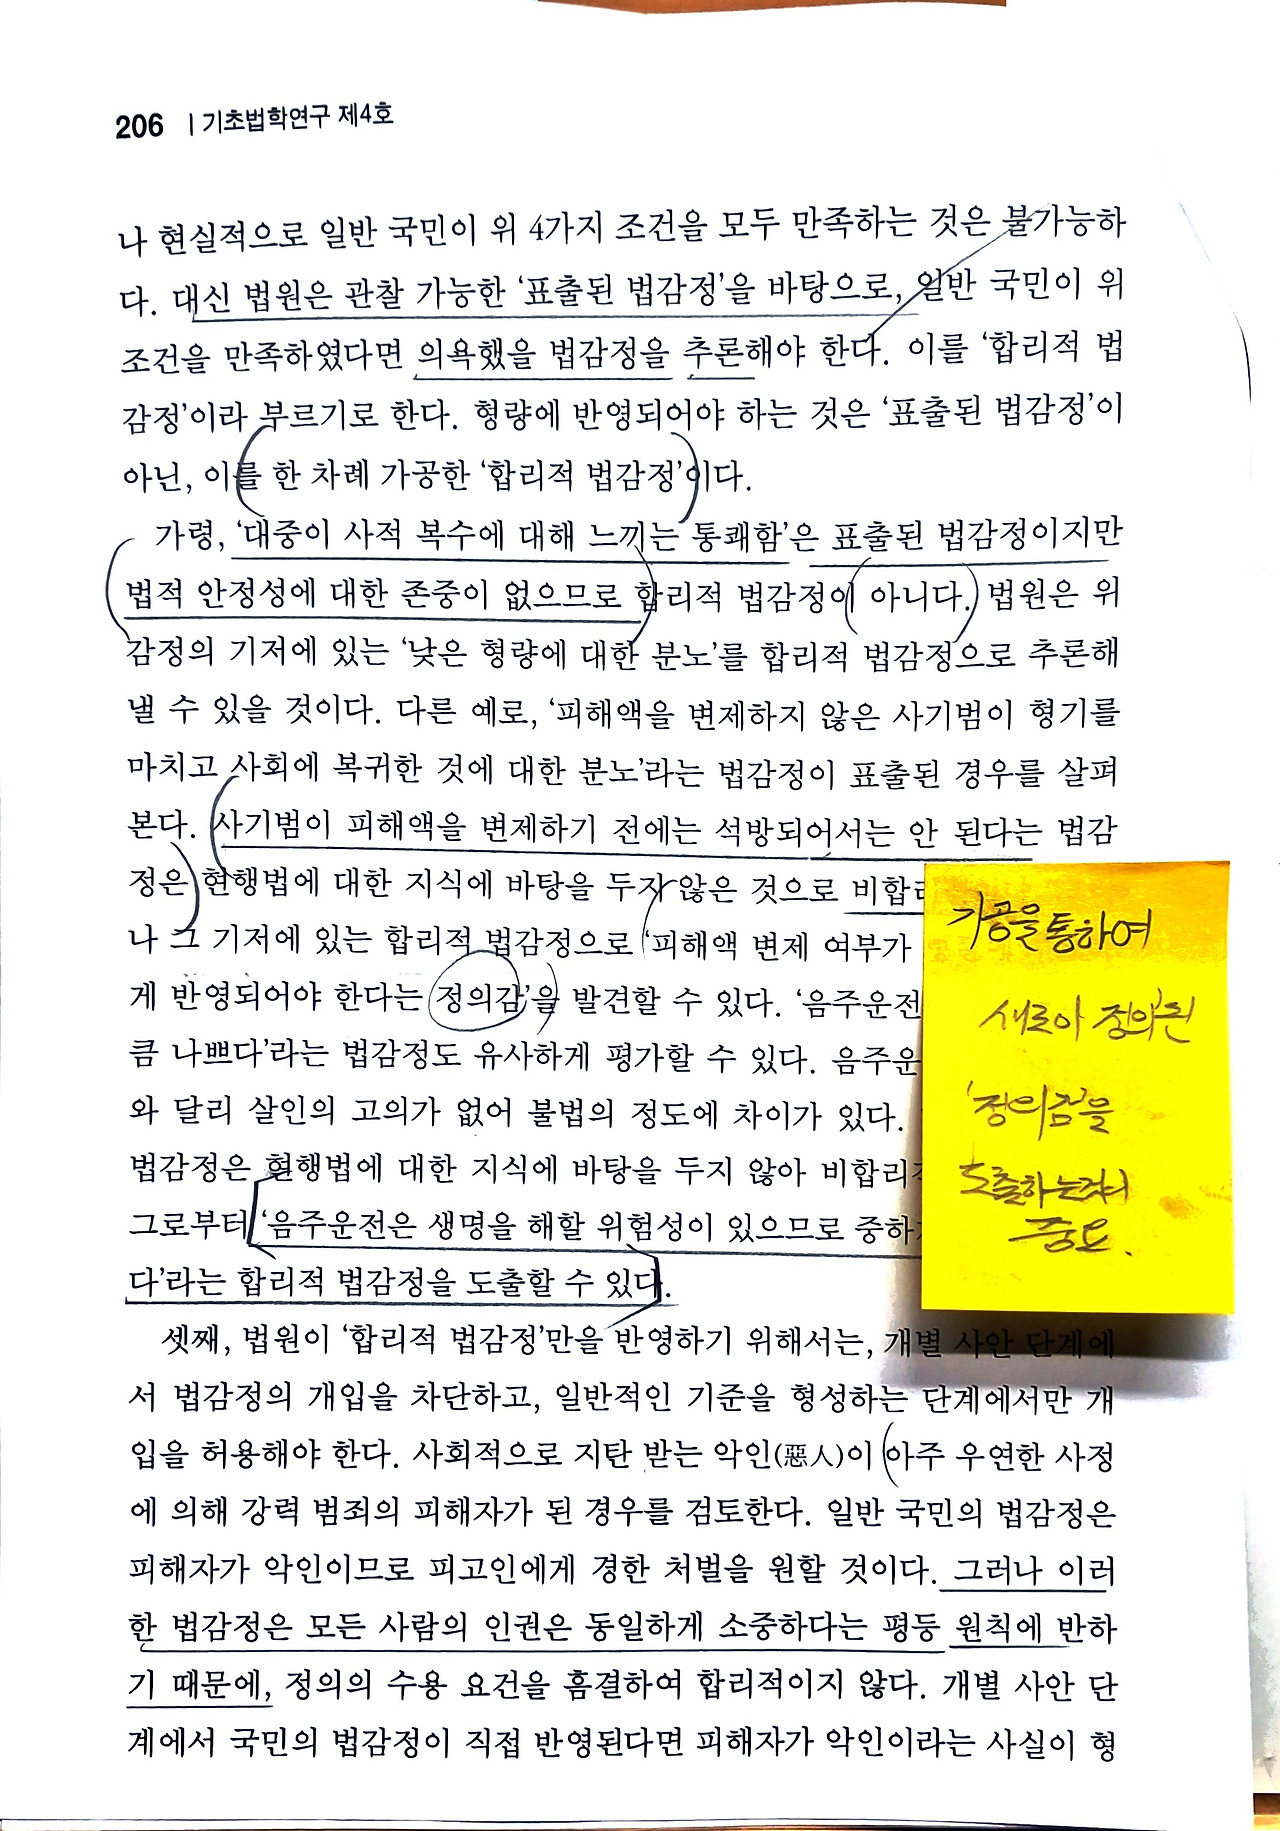 206 | 기초법학연구 제4호
나 현실적으로 일반 국민이 위 4가지 조건을 모두 만족하는 것은 불가능하
다. 대신 법원은 관찰 가능한 ‘표출된 법감정’을 바탕으로, 일반 국민이 위
조건을 만족하였다면 의욕했을 법감정을 추론해야 한다. 이를 ‘합리적 법
감정’이라 부르기로 한다. 형량에 반영되어야 하는 것은 ‘표출된 법감정’이
아닌, 이를 한 차례 가공한 ‘합리적 법감정’이다.
가령, ‘대중이 사적 복수에 대해 느끼는 통쾌함’은 표출된 법감정이지만
법적 안정성에 대한 존중이 없으므로 합리적 법감정이 아니다. 법원은 위
감정의 기저에 있는 ‘낮은 형량에 대한 분노’를 합리적 법감정으로 추론해
낼 수 있을 것이다. 다른 예로, ‘피해액을 변제하지 않은 사기범이 형기를
마치고 사회에 복귀한 것에 대한 분노’라는 법감정이 표출된 경우를 살펴
본다. 사기범이 피해액을 변제하기 전에는 석방되어서는 안 된다는 법감
정은 현행법에 대한 지식에 바탕을 두지 않은 것으로 비합
나 그 기저에 있는 합리적 법감정으로 ‘피해액 변제 여부가
게 반영되어야 한다는 정의감’을 발견할 수 있다. ‘음주운전
큼 나쁘다’라는 법감정도 유사하게 평가할 수 있다. 음주운
와 달리 살인의 고의가 없어 불법의 정도에 차이가 있다.
법감정은 현행법에 대한 지식에 바탕을 두지 않아 비합리
그로부터 ‘음주운전은 생명을 해할 위험성이 있으므로 중하
다’라는 합리적 법감정을 도출할 수 있다.
가공을 통하여
새로이 정의된
'정의감'을
도출하는것이
중요.
셋째, 법원이 ‘합리적 법감정’만을 반영하기 위해서는, 개별 사안 단계에
서 법감정의 개입을 차단하고, 일반적인 기준을 형성하는 단계에서만 개
입을 허용해야 한다. 사회적으로 지탄 받는 악인(惡人)이 아주 우연한 사정
에 의해 강력 범죄의 피해자가 된 경우를 검토한다. 일반 국민의 법감정은
피해자가 악인이므로 피고인에게 경한 처벌을 원할 것이다. 그러나 이러
한 법감정은 모든 사람의 인권은 동일하게 소중하다는 평등 원칙에 반하
기 때문에, 정의의 수용 요건을 흠결하여 합리적이지 않다. 개별 사안 단
계에서 국민의 법감정이 직접 반영된다면 피해자가 악인이라는 사실이 형